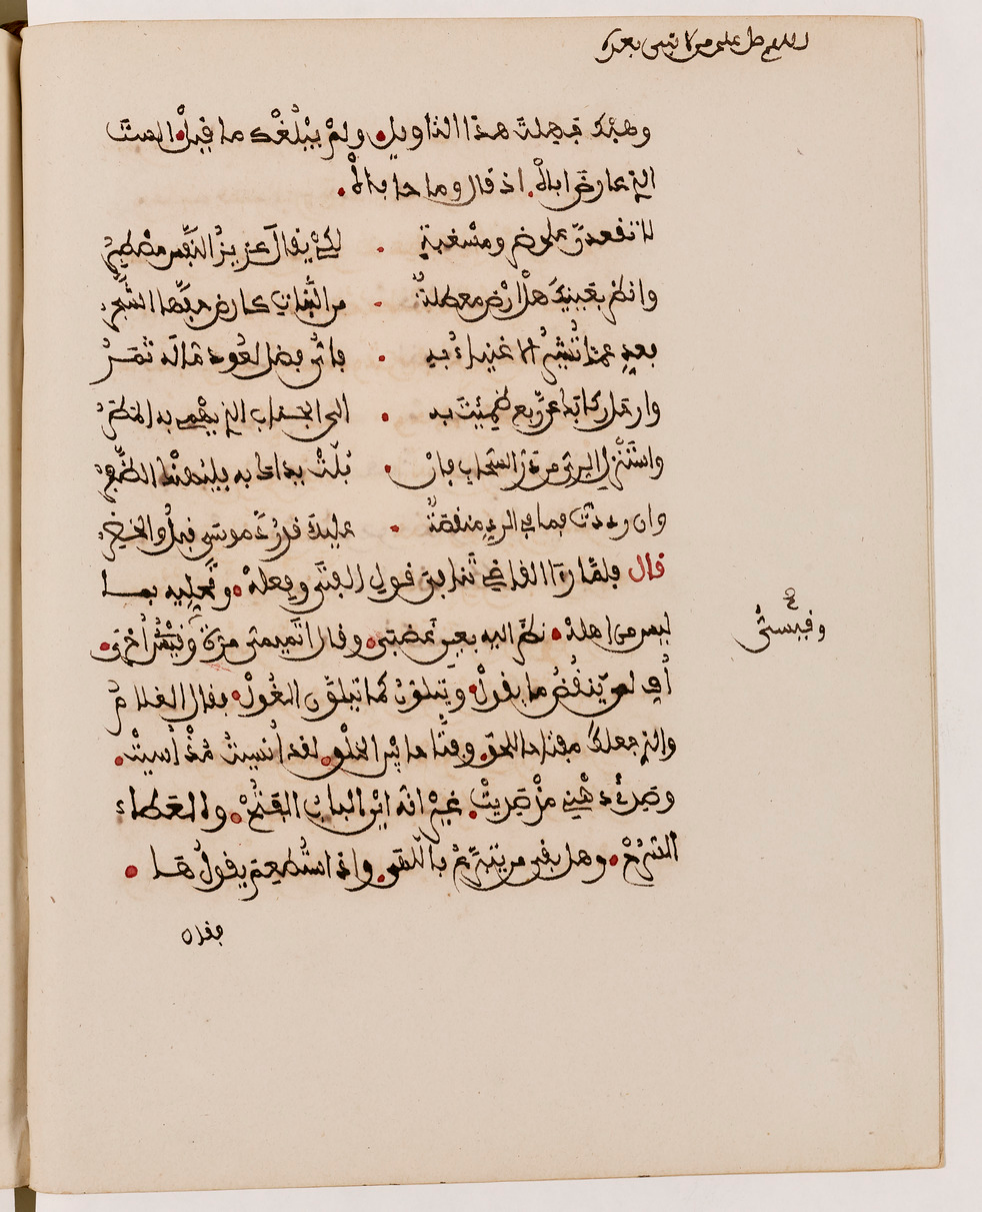 اللهم صل على من لا نبي بعده
وهبك جهلت هذا التاويل ولم يبلغك ما قيل الست
الذي عارض اباه اذ قال وما حاباه
لا تقعدن على ضر ومسغبة لكي يقال عزيز النفس مصطبر
وانظر بعينك هل ارض معطلة من النبات كارض حفها الشجر
فعد عما تشير الاغبياء به فاي فضل لعود ماله ثمر
وارحل ركابك عن ربع ظمئت به الى الجناب الذي يهمي به المطر
واستنزل الري من در السحاب فان بلت يداك به فليهنك الظفر
وان رددت فما في الرد منقصة عليك قد رد موسى قبل والخضر
قال فلما راى القاضي تنافي قول الفتى وفعله وتحليه بما
ليس من اهله نظر اليه بعين غضبى وقال اتميمي مرة وقيسي اخرى
وقيسي
اف لمن ينقض ما يقول ويتلون كما تتلون الغول فقال الغلام
والذي جعلك مفتاحا للحق وفتاحا بين الخلق لقد انسيت مذ اسيت
وصدئ ذهني مذ صديت غير انه اين الباب الفتح والعطاء
السرح وهل بقي من يتبرع باللهى واذا استطعم يقول ها